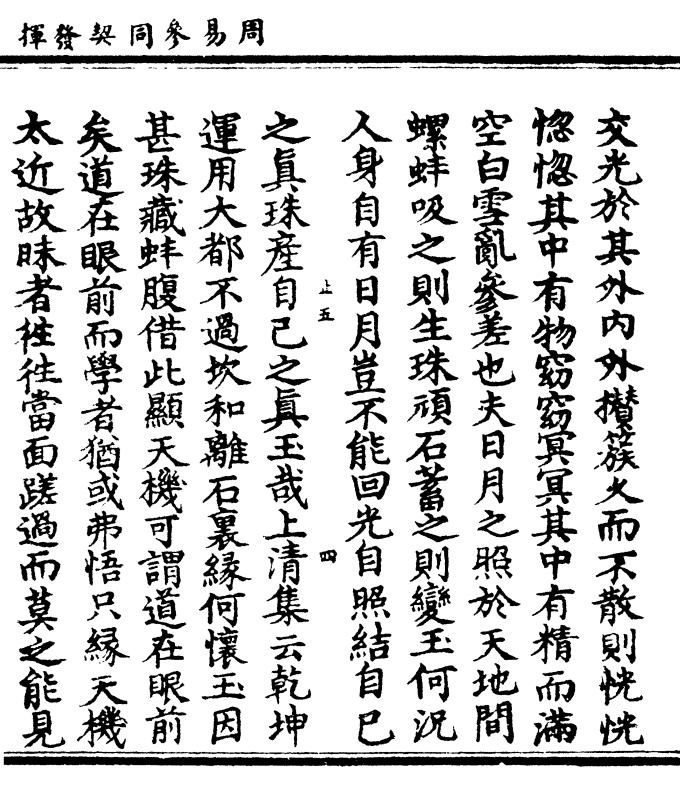 周易參同契發揮
交光於其外內外攅簇久而不散則恍恍
惚惚其中有物窈窈冥冥其中有精而滿
空白雪亂參差也夫日月之照於天地間
螺蚌吸之則生珠頑石蓄之則變玉何況
人身自有日月豈不能回光自照結自己
止五
四
之眞珠産自己之眞玉哉上清集云乾坤
運用大都不過坎和離石裏緣何懷玉因
甚珠藏蚌腹借此顯天機可謂道在眼前
矣道在眼前而學者猶或弗悟只緣天機
太近故昧者徃徃當面蹉過而莫之能見